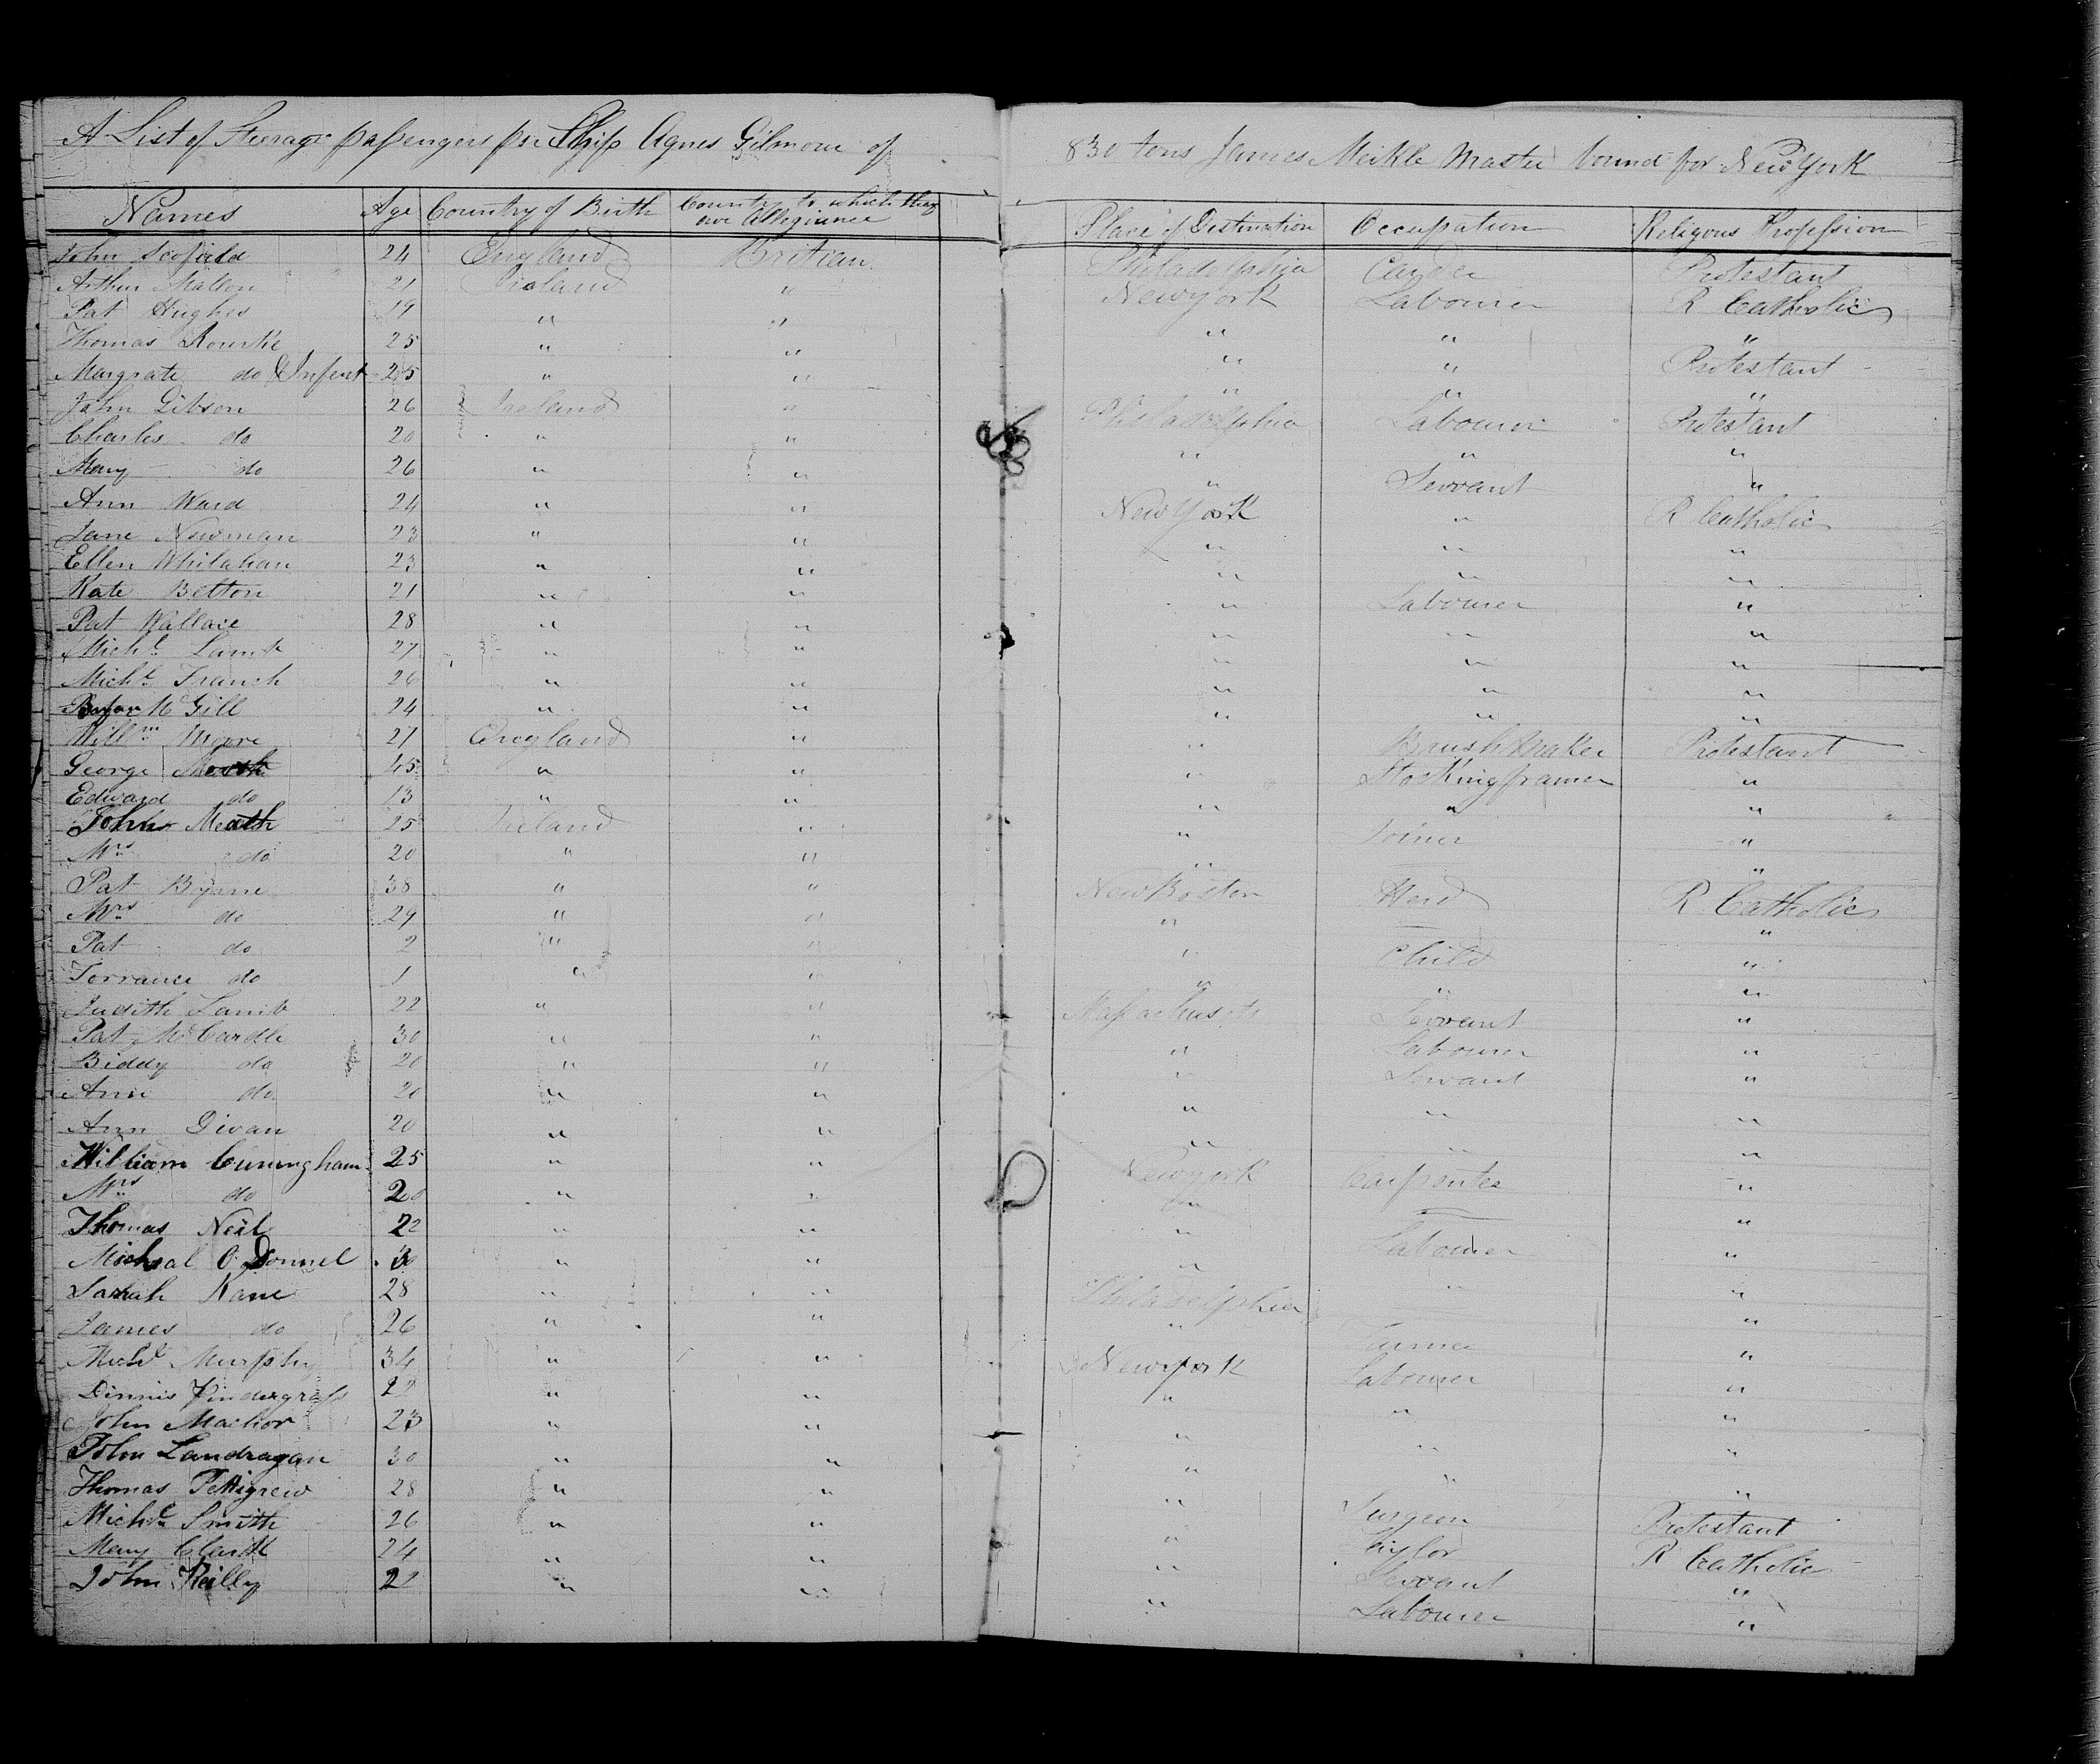 A List of Steerage passengers per Ship Agnes Gilmour of 830 tons James Meikle Master bound for New York
Names Age Country of Birth Country to which they owe Allegiance Place of Destination Occupation Religous Profession
John Scofield 24 England Britian Philadelphia Protestant
Arthur Mallon 21 Ireland " New york Labourer R Catholic
Pat Hughes 19 " " " " "
Thomas Rourke 25 " " " " Protestant
Margrate do & Infent 25 " " " " "
John Gibson 26 Ireland " Philadelphia Labourer Protestant
Charles do 20 " " " " "
Mary do 26 " " " Servant "
Ann Ward 24 " " New York " R Catholic
Jane Newman 23 " " " " "
Ellen Whilahan 23 " " " " "
Kate Belton 21 " " " Labourer "
Pat Wallace 28 " " " " "
Michl Lamb 27 " " " " "
Michl Franch 26 " " " " "
Mc Gill 24 " " " " "
Willm Moore 27 England " " Brush Maker Protestant
George 45 " " " Stocking framer "
Edward do 13 " " " " "
John Meath 25 Ireland " " Joiner "
Mrs do 20 " " " — "
Pat Byrne 38 " " New Boston Herd R Catholic
Mrs do 29 " " " — "
Pat do 2 " " " Child "
Torrance do 1 " " " " "
Judith Lamb 22 " " Massachusets Servant "
Pat McCardle 30 " " " Labourer "
Biddy do 20 " " " Servant "
Ann do 20 " " " " "
Ann Givan 20 " " " " "
William Cuningham 25 " " New york Carpenter "
Mrs do 20 " " " — "
Thomas Neil 22 " " " Labourer "
Michael O'Donnel 30 " " " " "
Sarah Kane 28 " " Philadelphia — "
James do 26 " " " "
Michl Murphy 34 " " New york Labourer "
Dinnis Pindergrass 22 " " " " "
John Machor 23 " " " " "
John Landragan 30 " " " " "
Thomas Pettigrew 28 " " " Surgeon Protestant
Michl Smith 26 " " " Taylor R Catholic
Mary Clark 24 " " " Servant "
John Reilly 22 " " " Labourer "